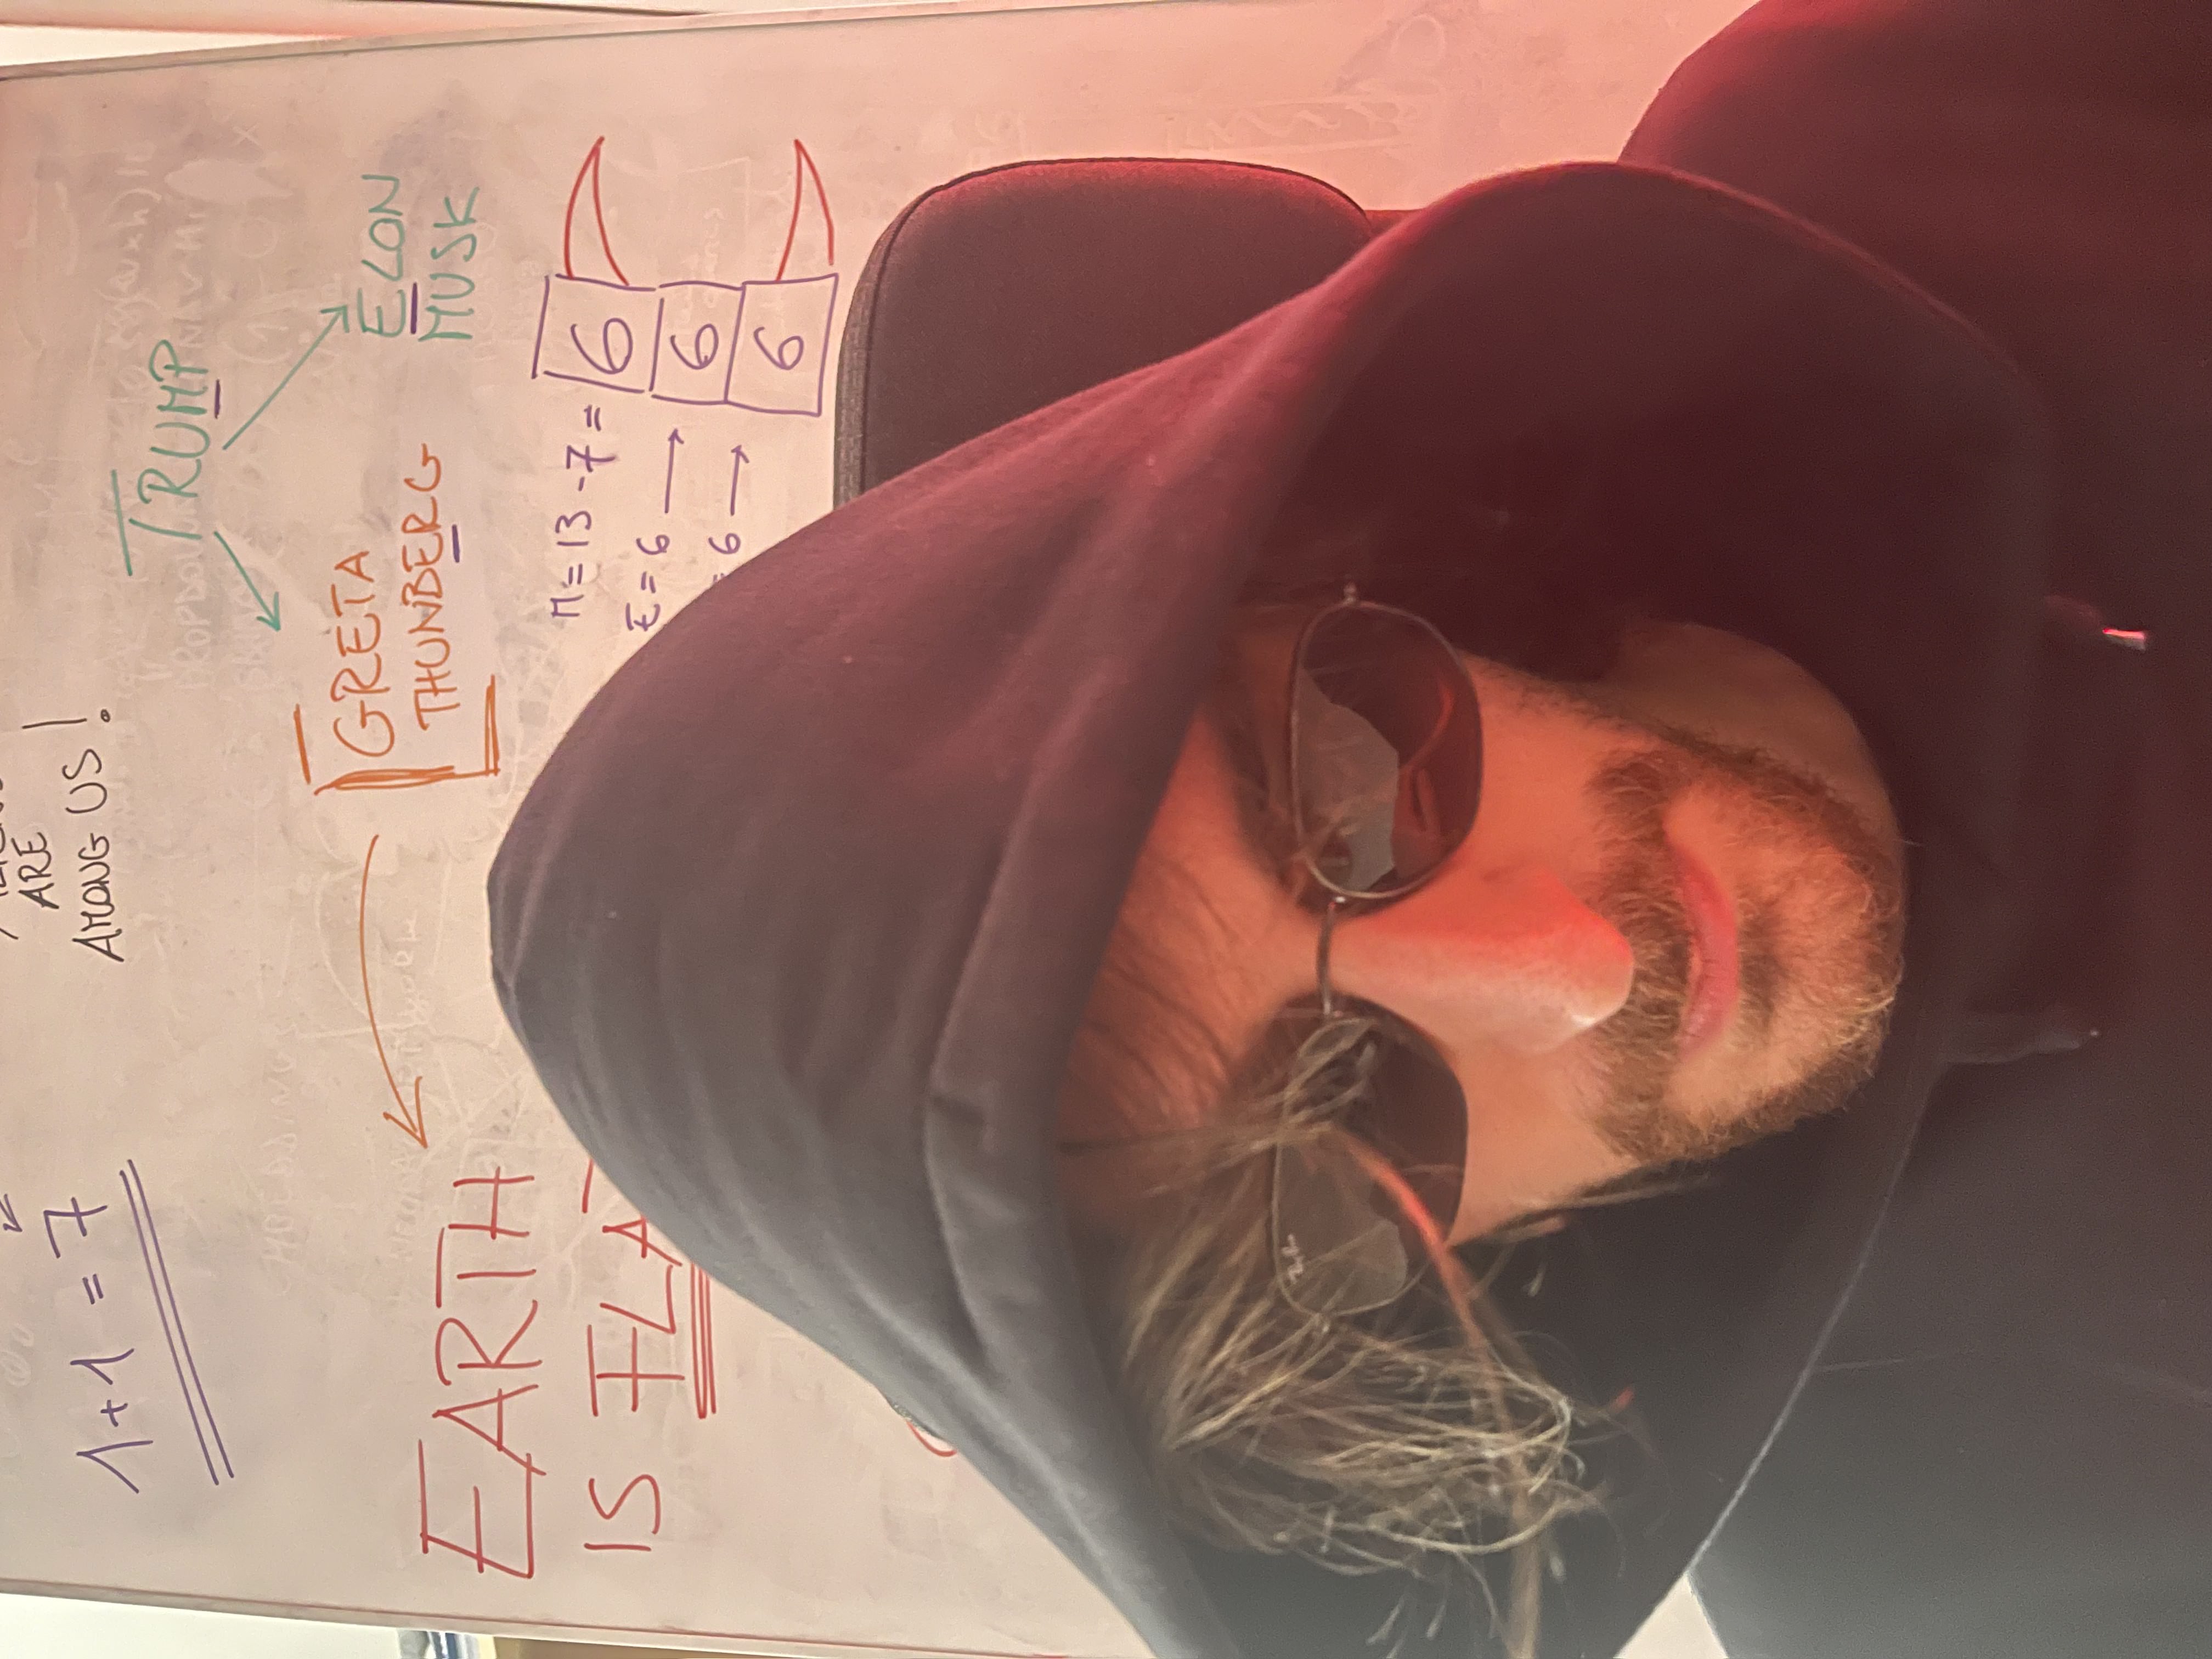 1+1 = 7
ARE
AMONG US!
TRUMP
GRETA
THUNBERG
ELON
MUSK
EARTH
IS
M = 13 - 7 = 6
E = 6 → 6
6 → 6
Ray-Ban